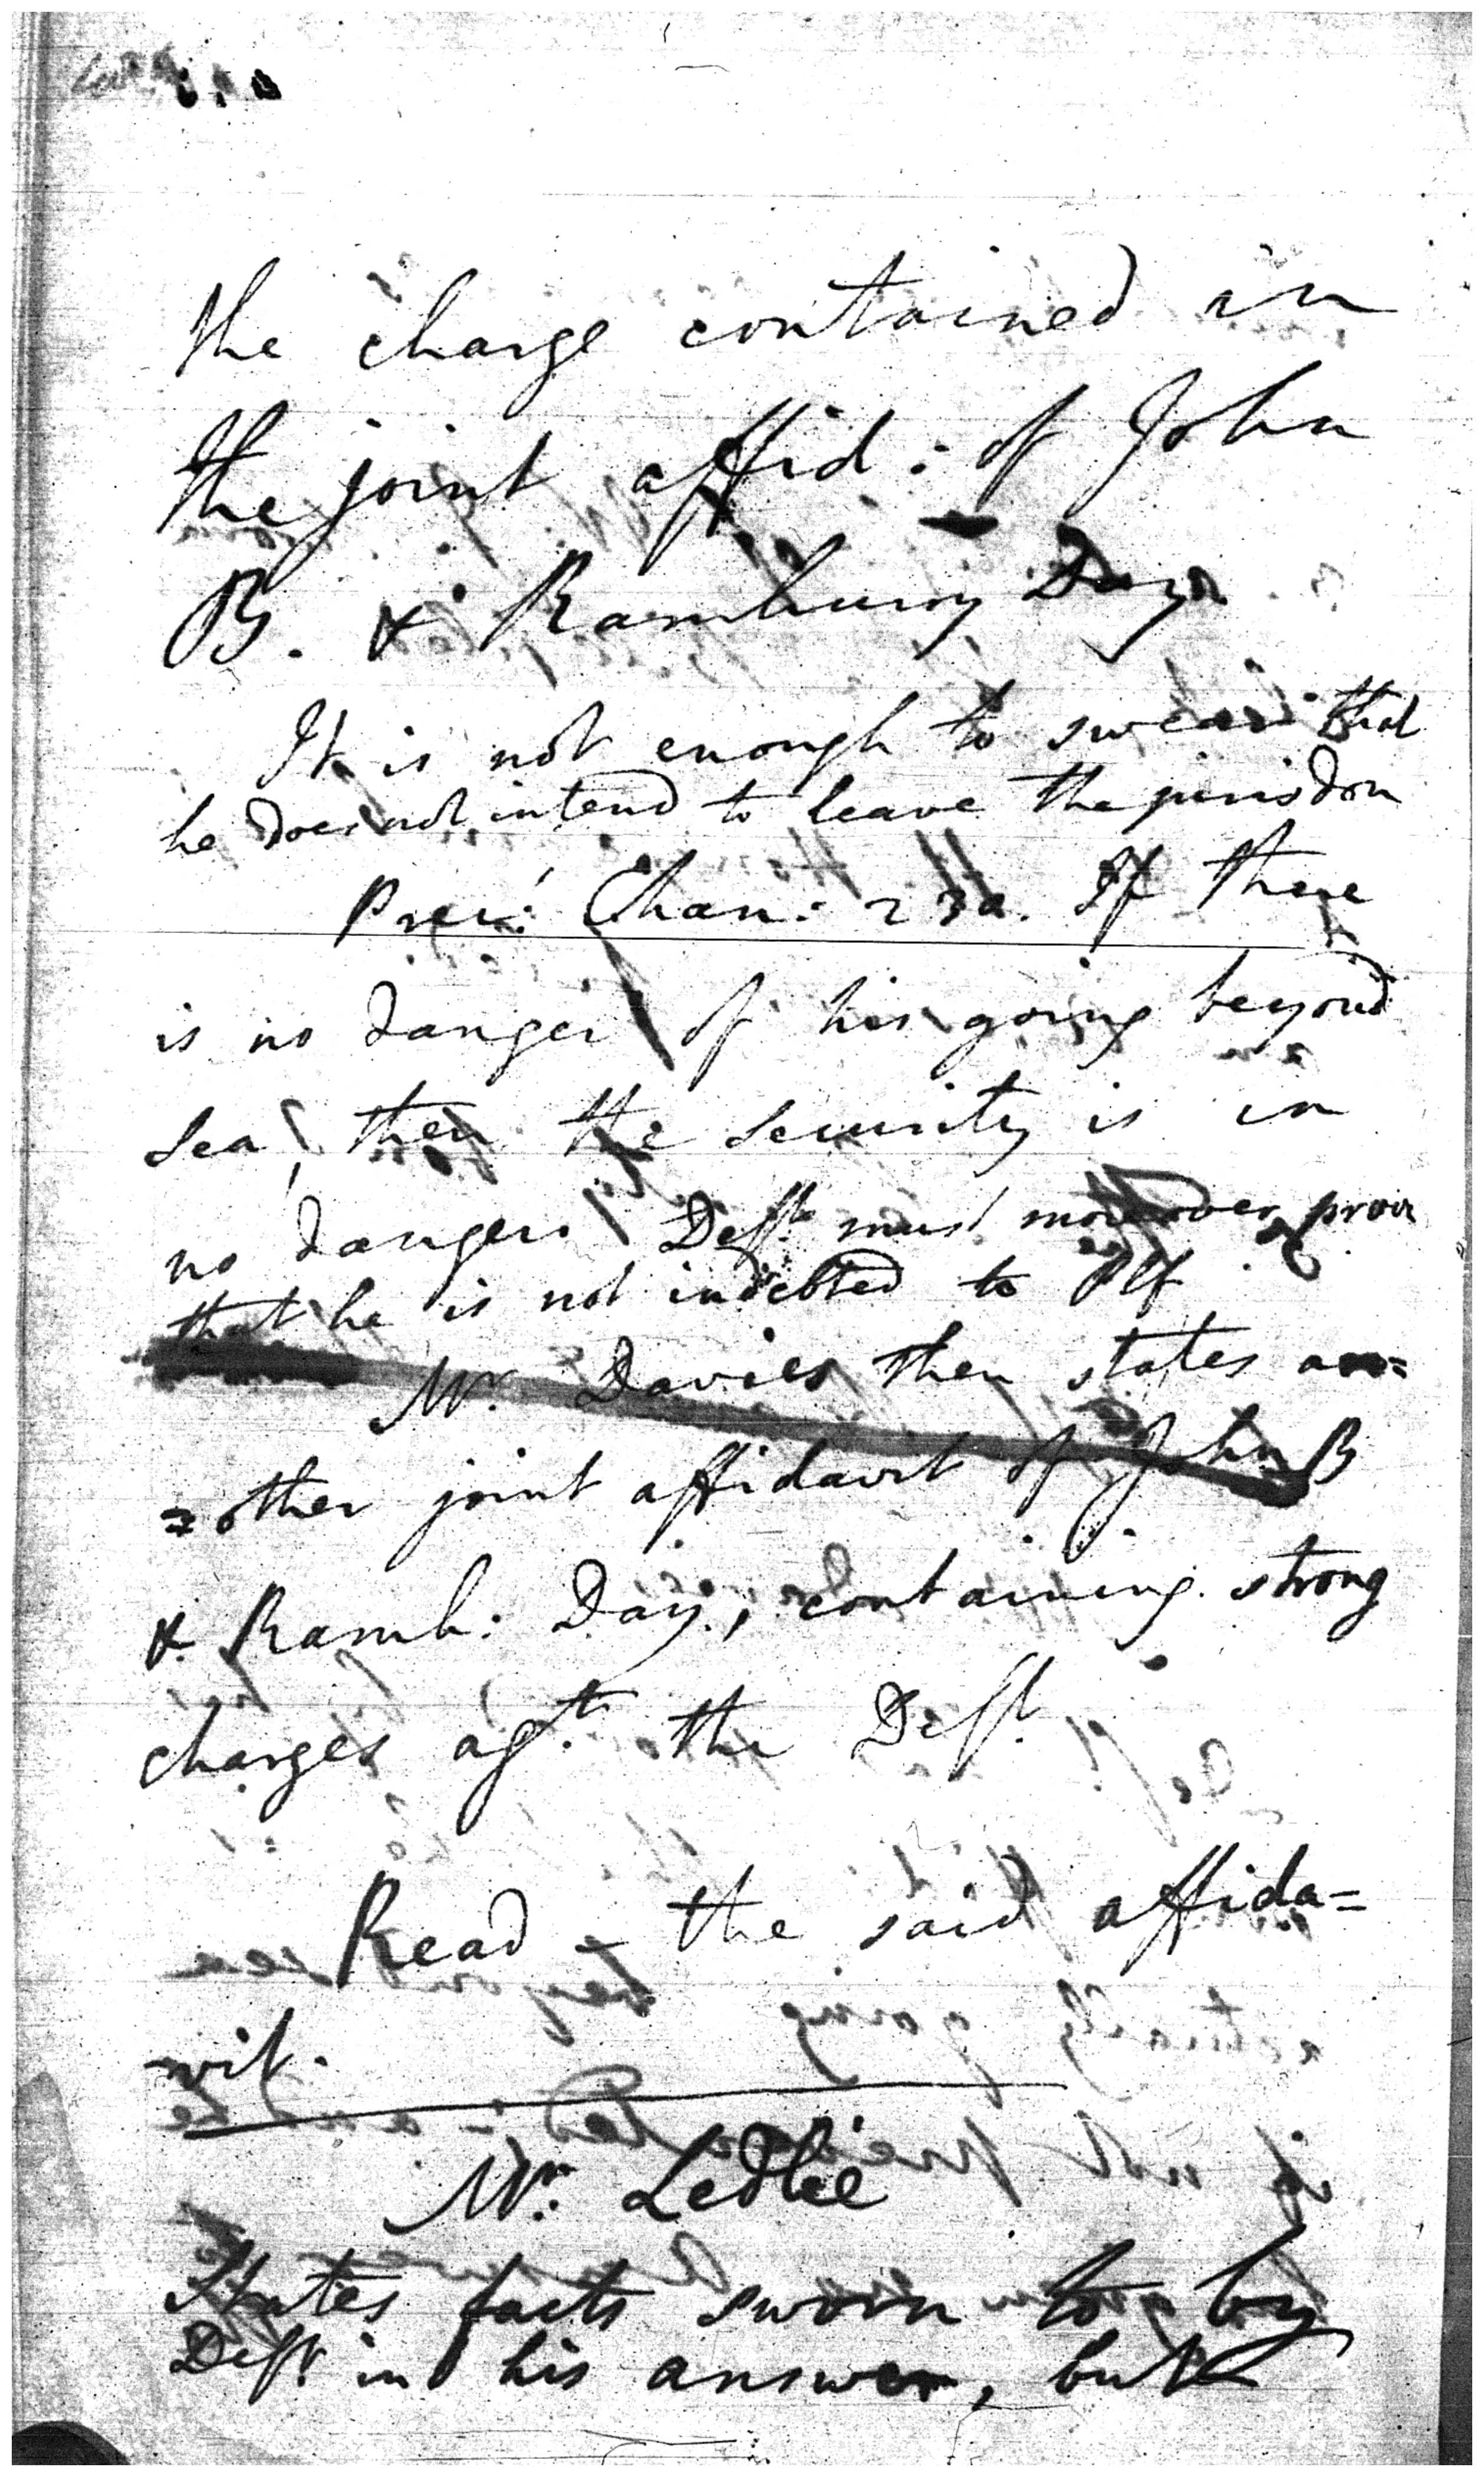 the charge contained in
the joint affid: of John
B. & Rambury Day.
It is not enough to swear that
he does not intend to leave the jurisdon
Prec: Chan: 230. If there
is no danger of his going beyond
sea, then the security is in
no danger. Deft. must moreover prove
that he is not indebted to Plf.
Mr. Davies then states an=
=other joint affidavit of John B
& Ramb: Day, containing strong
charges agt. the Deft.
Read - the said affida=
=vit.
Mr. Ledlie
States facts sworn to by
Deft. in his answer, but